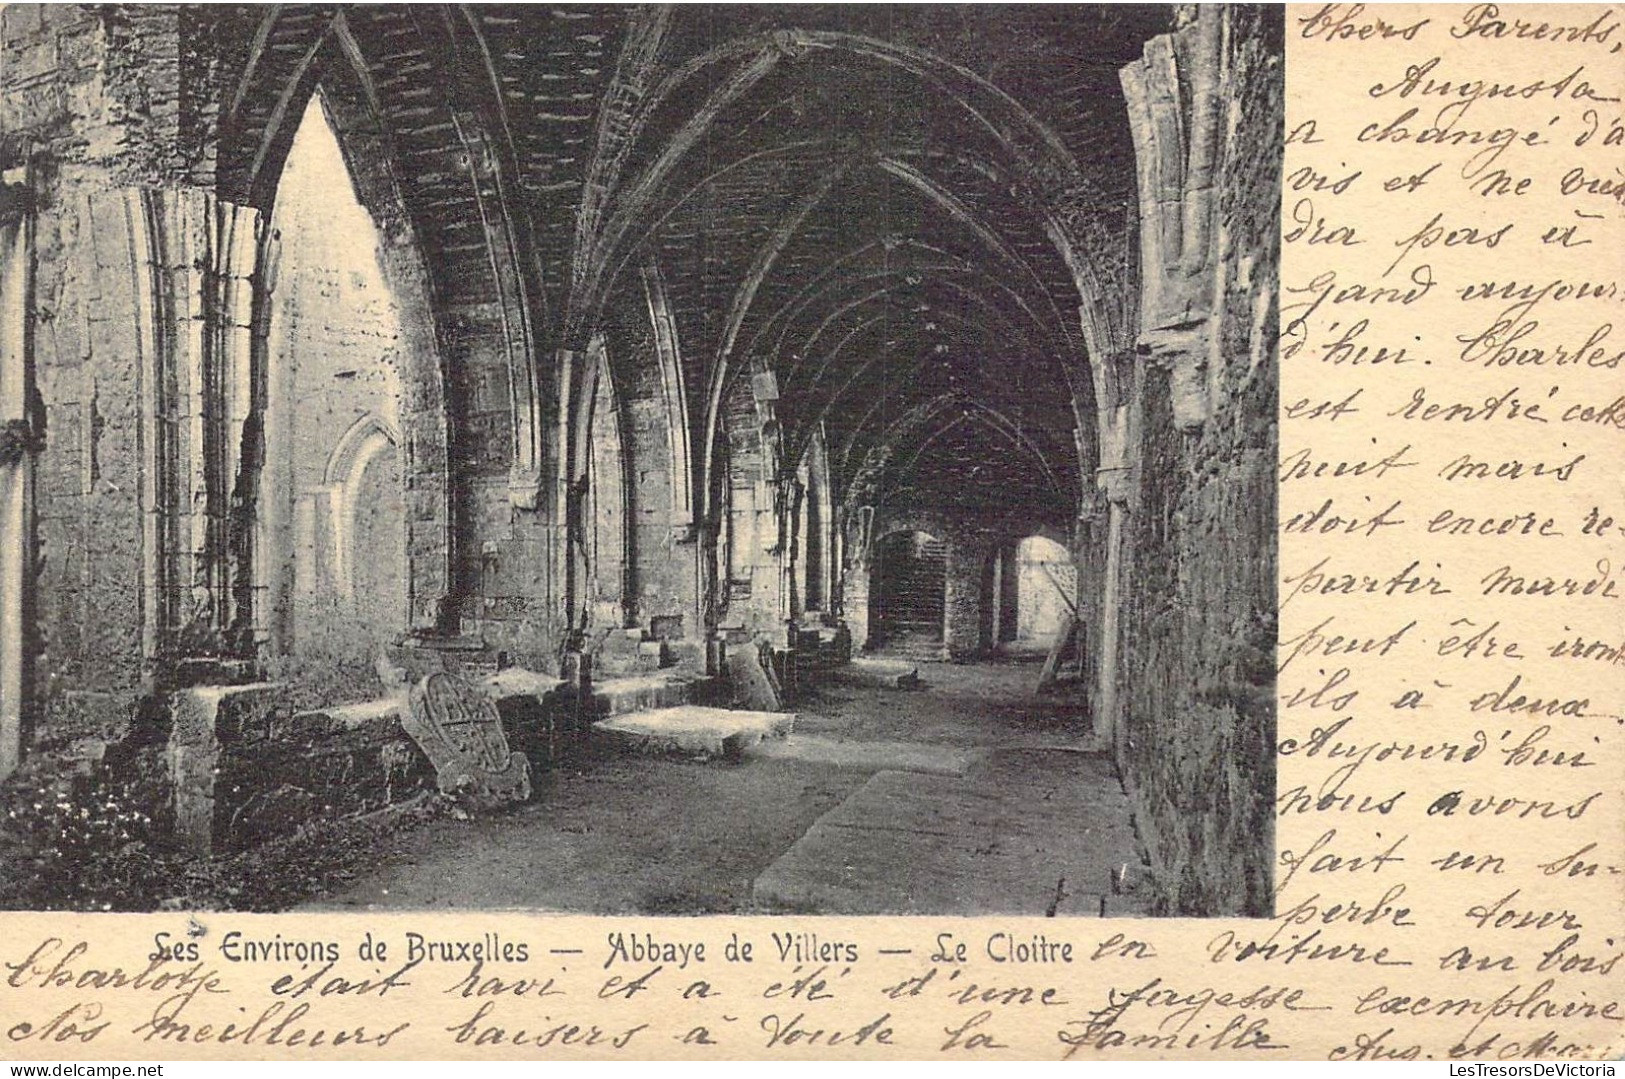 Chers Parents,
Augusta
a changé d'a
vis et ne vien
dra pas à
Gand aujour-
d'hui. Charles
est rentré cette
nuit mais
doit encore re-
partir mardi
peut être iront
ils à deux.
Aujourd'hui
nous avons
fait un su-
perbe tour
en voiture au bois
Les Environs de Bruxelles — Abbaye de Villers — Le Cloître
Charlotje était ravi et a été d'une sagesse exemplaire
Nos meilleurs baisers à toute la famille
Aug. et Mari
LesTresorsDeVictoria